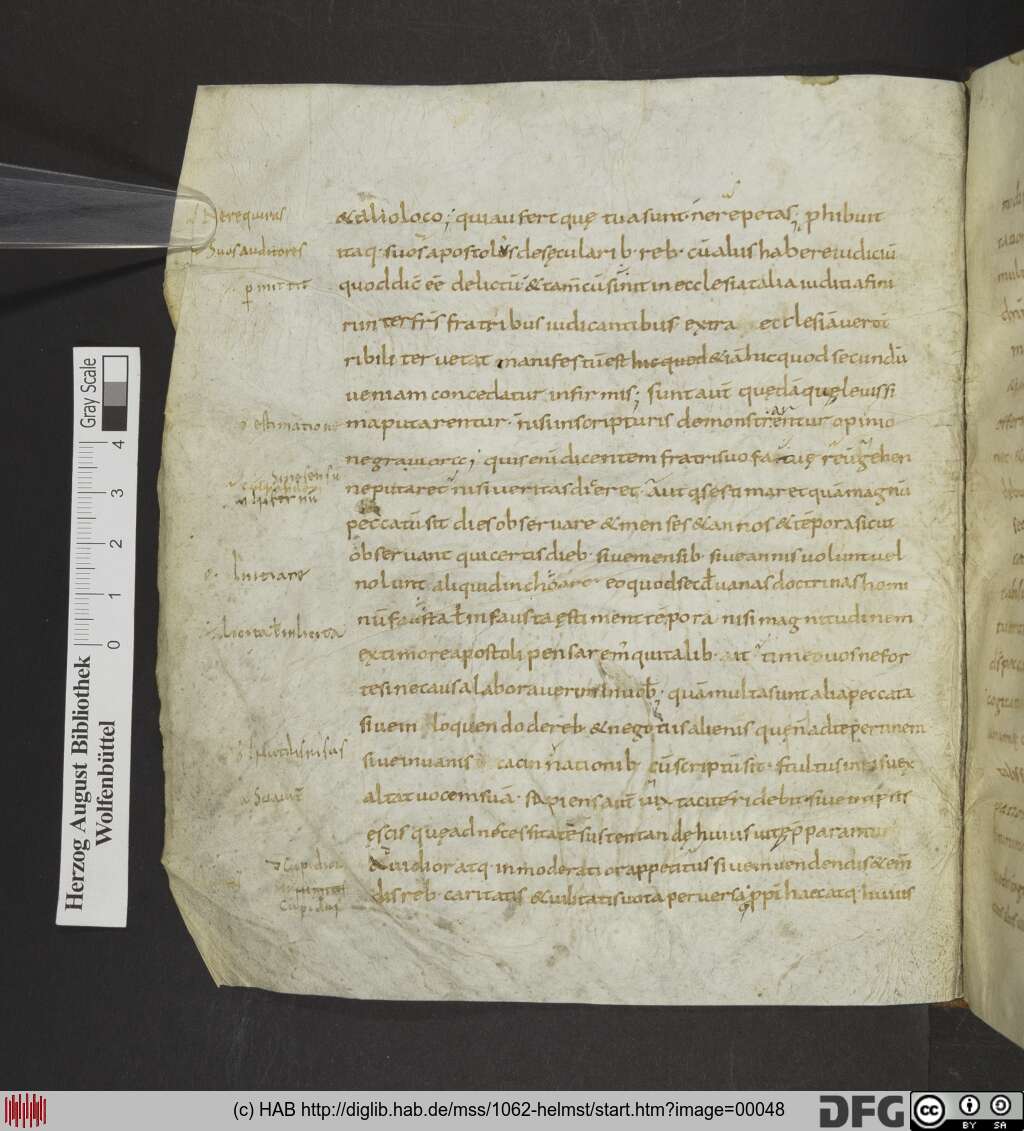 &alio loco; qui aufert quę tua sunt ne repetas; phibuit
itaq· suos apostolus de sęcularib· reb· cū aliis habere iudiciū
quod dic̄ eē delictū & tam̄ cū sinit in ecclesia talia iuditia fini
ri inter frīs fratribus iudicantibus extra ecclesiā vero
ribiliter uetat manifestū est hic quod & iā huc quod secundū
ueniam concedatur infirmis; sunt aut̄ quędā quę leuissi
ma putarentur· nisi in scripturis demonstrarentur opinio
ne graviora; quis enī dicentem fratri suo fatuę reū gehen
ne putaret nisi veritas diceret· aut q̄s estimaret quā magnū
peccatū sit dies observare & menses & annos & tēpora sicut
observant qui certis dieb· sive mensib· sive annis uolunt vel
nolunt aliquid inchoare· eo quod sec̄d vanas doctrinas homi
nū fausta ł infausta ęstiment tēpora nisi magnitudinem
ex timore apostoli pensarem̄ qui talib· ait timeo uos ne for
te sine causa laboraverim in uob̄· quā multa sunt alia peccata
sive in loquendo de reb· & negotiis alienis quę n̄ ad te pertinent
sive in vanis cacinnationib· cū scriptū sit· stultus in risu ex
altat uocem suā· sapiens aut̄ vix tacite ridebit sive in ipsis
ęscis quę ad necessitatē sustentandę huius uitę pparantur
avidior atq· inmoderatior appetitus sive in vendendis & em̄
dis reb· caritatis & vilitatis vota perversa ppt̄ haec atq· huius
ne requiras
suos auditores
pmittit
estimatione
Initiare
licita ł inlicita
Suav̄
Cupidior
Cupidini
Gray Scale
4
3
2
1
0
Herzog August Bibliothek
Wolfenbüttel
(c) HAB http://diglib.hab.de/mss/1062-helmst/start.htm?image=00048
DFG
cc
BY SA